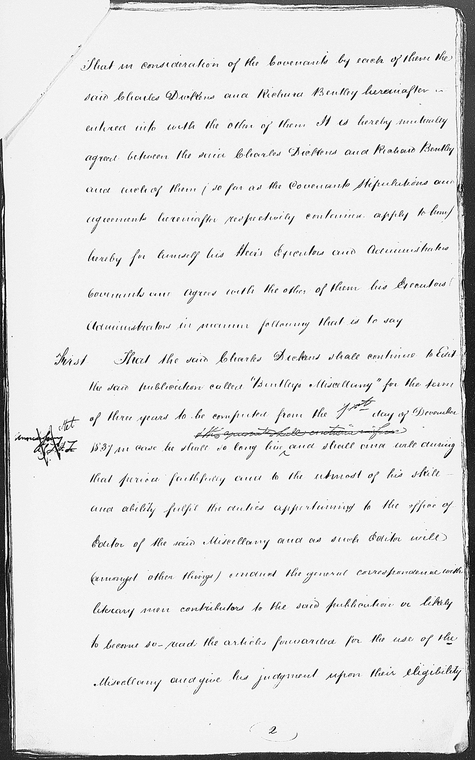 That in consideration of the Covenants by each of them the
said Charles Dickens and Richard Bentley hereinafter
entered into with the other of them It is hereby mutually
agreed between the said Charles Dickens and Richard Bentley
and each of them (so far as the Covenants Stipulations and
agreements hereinafter respectively contained apply to him)
hereby for himself his Heirs Executors and Administrators
Covenants and agrees with the other of them his Executors
Administrators in manner following that is to say
First That the said Charles Dickens shall continue to Edit
the said publication called "Bentleys Miscellany" for the term
of three years to be computed from the first day of December
1837 in case he shall so long live and shall and will during
that period faithfully and to the utmost of his skill
and ability fulfil the duties appertaining to the office of
Editor of the said Miscellany and as such Editor will
(amongst other things) conduct the general correspondence with
literary men contributors to the said publication or likely
to become so - read the articles forwarded for the use of the
Miscellany and give his judgment upon their eligibility
2